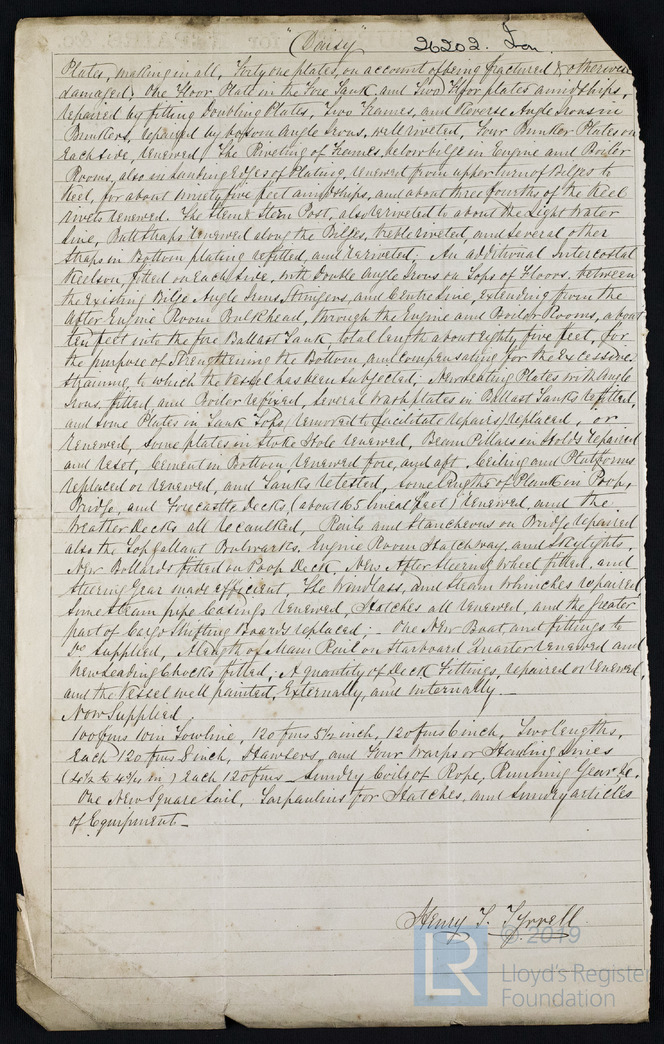 "Daisy" 26202. Iron
Plates, making in all, Forty one plates, on account of being fractured & otherwise
damaged, One Floor Plate in the Fore Tank, and Two Floor plates amidships,
repaired by fitting Doubling Plates, Two Frames, and Reverse Angle Irons in
Bunkers, repaired by bosom Angle Irons, well riveted, Four Bunker Plates on
Each side, renewed, The Riveting of Frames, below bilge in Engine and Boiler
Rooms, also in Landing Edges of Plating, renewed from upper turn of Bilges to
Keel, for about ninety five feet amidships, and about three fourths of the Keel
rivets renewed. The Stem & Stern Post, also reriveted to about the Light Water
Line, Butt Straps renewed along the Bilges, treble riveted, and several other
Straps in Bottom plating refitted, and reriveted. An additional Intercostal
Keelson, fitted on Each side, with Double Angle Irons on Tops of Floors, between
the Existing Bilge Angle Irons, Stringers, and Centre line, extending from the
After Engine Room Bulkhead, through the Engine and Boiler Rooms, about
ten feet into the fore Ballast Tank, total length about Eighty five feet, for
the purpose of Strengthening the Bottom, and compensating for the excessive
straining to which the Vessel has been subjected; New seating Plates with Angle
Irons, fitted, and Boiler refixed, several wash plates in Ballast Tanks refitted,
and some Plates in Tank Tops (removed to facilitate repairs) replaced, or
renewed, some plates in Stoke Hole renewed, Beam Pillars in Holds repaired
and reset, Cement on Bottom renewed fore, and aft, Ceiling and Platforms
replaced or renewed, and Tanks retested, some lengths of Plank in Poop,
Bridge, and Forecastle Decks, (about 165 lineal feet) renewed, and the
Weather Decks all recaulked, Rails and Stanchions on Bridge repaired
also the Topgallant Bulwarks, Engine Room Hatchway, and Skylights,
New Bollards fitted on Poop Deck, New After Steering Wheel fitted, and
Steering Gear made efficient, The Windlass, and Steam Whinches repaired
Some Steam pipe Casings renewed, Hatches all renewed, and the greater
part of Cargo Shifting Boards replaced; – One New Boat, and fittings to
Do supplied, A length of Main Rail on Starboard Quarter renewed and
New Leading Chocks fitted; A quantity of Deck Fittings, repaired or renewed,
and the Vessel well painted, Externally, and internally. –
Now Supplied
100 fms 10 in Towline, 120 fms 5½ inch, 120 fms 6 inch, Two lengths,
Each 120 fms 8 inch, Hawsers, and Four Warps or Hauling Lines
Each 120 fms – Sundry Coils of Rope, Running Gear &c.
One New Square Sail, Tarpaulins for Hatches, and Sundry articles
of Equipment –
Henry T. Tyrrell
© 2019
LR
Lloyd's Register
Foundation